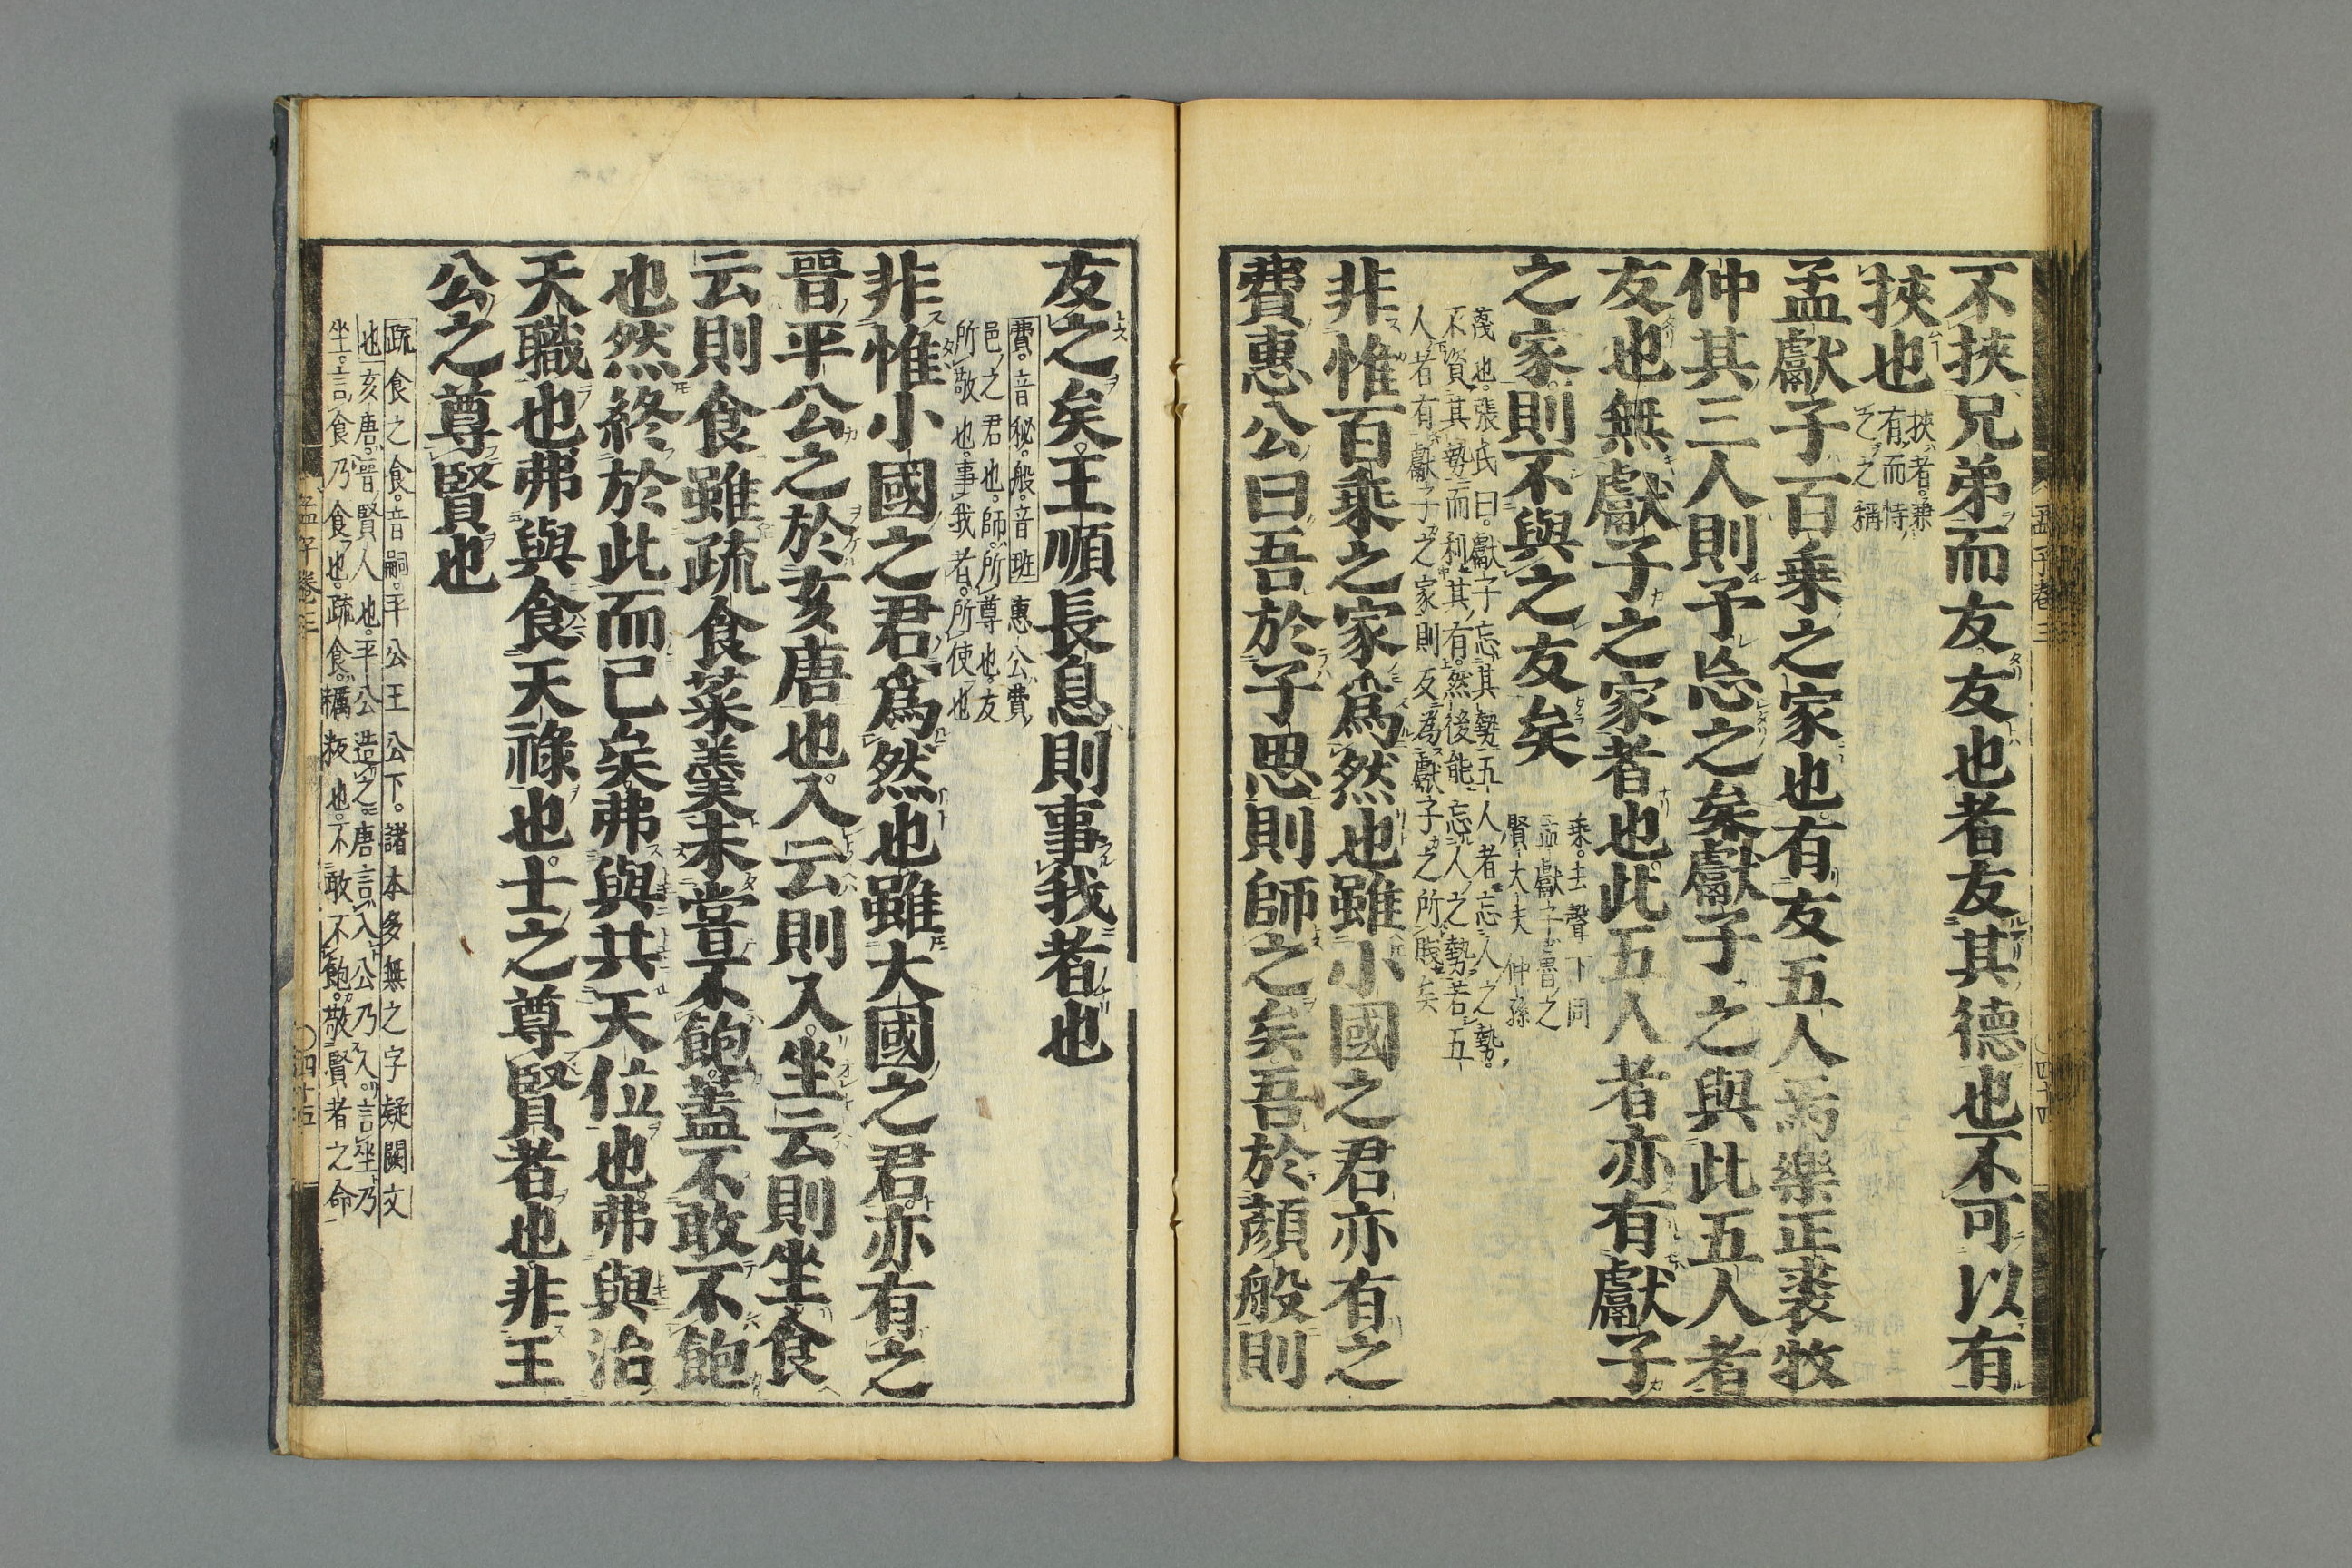 不挾兄弟而友友也者友其德也不可以有
挾也
挾者兼
有而恃
之之稱
孟獻子百乗之家也有友五人焉樂正裘牧
仲其三人則予忘之矣獻子之與此五人者
友也無獻子之家者也此五人者亦有獻子
之家則不與之友矣
乗去聲下同
孟獻子魯之
賢大夫仲孫
蔑也張氏曰獻子忘其勢五人者忘人之勢
不資其勢而利其有然後能忘人之勢若五
人者有獻子之家則反為獻子之所賤矣
非惟百乗之家爲然也雖小國之君亦有之
費惠公曰吾於子思則師之矣吾於顔般則
友之矣王順長息則事我者也
費音秘般音班惠公費
邑之君也師所尊也友
所敬也事我者所使也
非惟小國之君爲然也雖大國之君亦有之
晉平公之於亥唐也入云則入坐云則坐食
云則食雖疏食菜羹未甞不飽蓋不敢不飽
也然終於此而已矣弗與共天位也弗與治
天職也弗與食天祿也士之尊賢者也非王
公之尊賢也
疏食之食音嗣平公王公下諸本多無之字疑闕文
也亥唐晉賢人也平公造之唐言入公乃入言坐乃
坐言食乃食也疏食糲飯也不敢不飽敬賢者之命
孟子卷三
四十四
孟子卷三
四十五